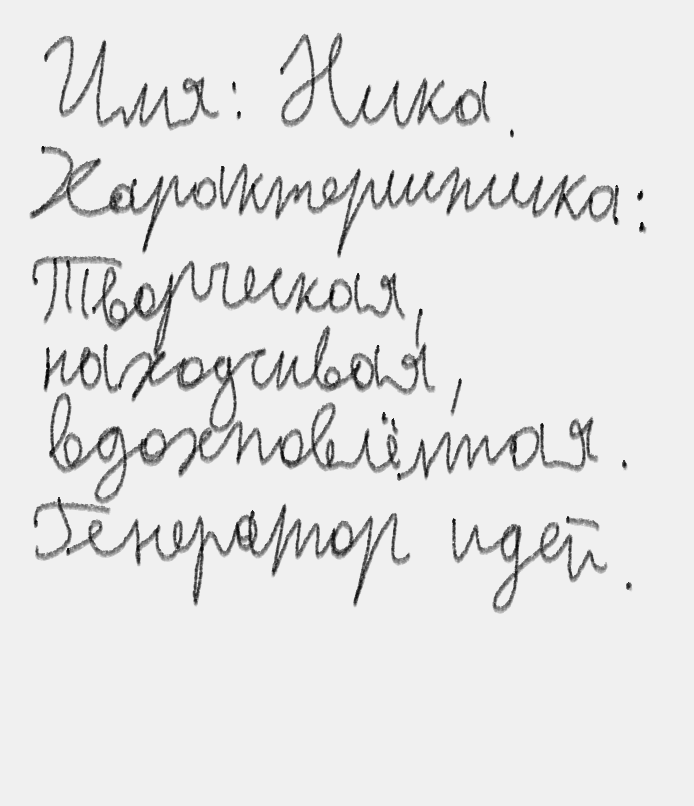 Имя: Ника.
Характеристика:
Творческая,
находчивая,
вдохновлённая.
Генератор идей.